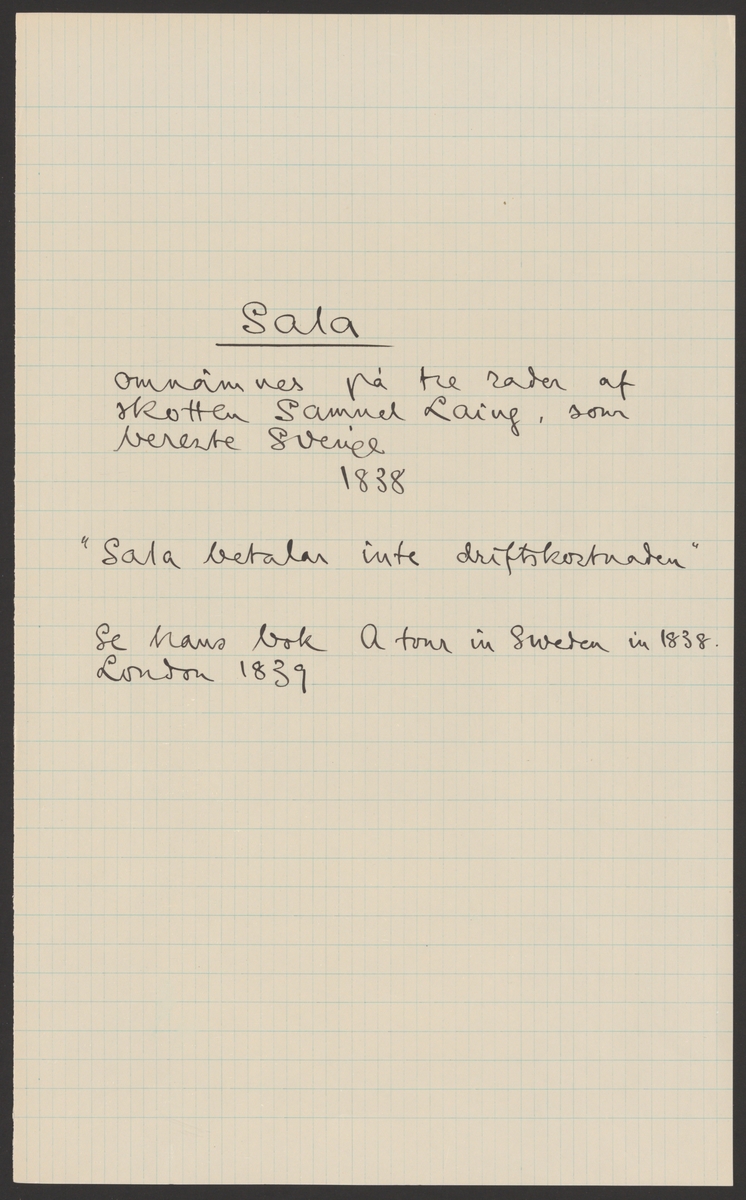 Sala
omnämnes på tre rader af
skotten Samuel Laing, som
bereste Sverige
1838
"Sala betalar inte driftskostnaden"
Se hans bok A tour in Sweden in 1838.
London 1839